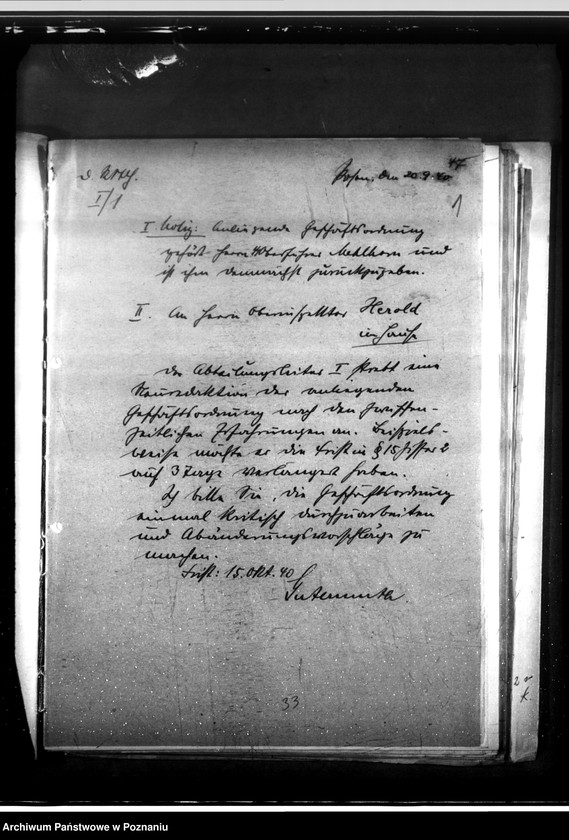 47
Posen, den 20.9.40
I/1
1
I Notiz: Anliegende Geschäftsordnung
gehört Herrn Oberführer Mehlhorn und
ist ihm demnächst zurückzugeben.
II. An Herrn Oberinspektor Herold
im Hause
Der Abteilungsleiter I strebt eine
Neuredaktion der anliegenden
Geschäftsordnung nach den zwischen-
zeitlichen Erfahrungen an. Beispiels-
weise möchte er die Frist in § 15 Ziffer 2
auf 3 Tage verlängert haben.
Ich bitte Sie, die Geschäftsordnung
einmal kritisch durchzuarbeiten
und Abänderungsvorschläge zu
machen.
Frist: 15. Okt. 40
33
Archiwum Państwowe w Poznaniu